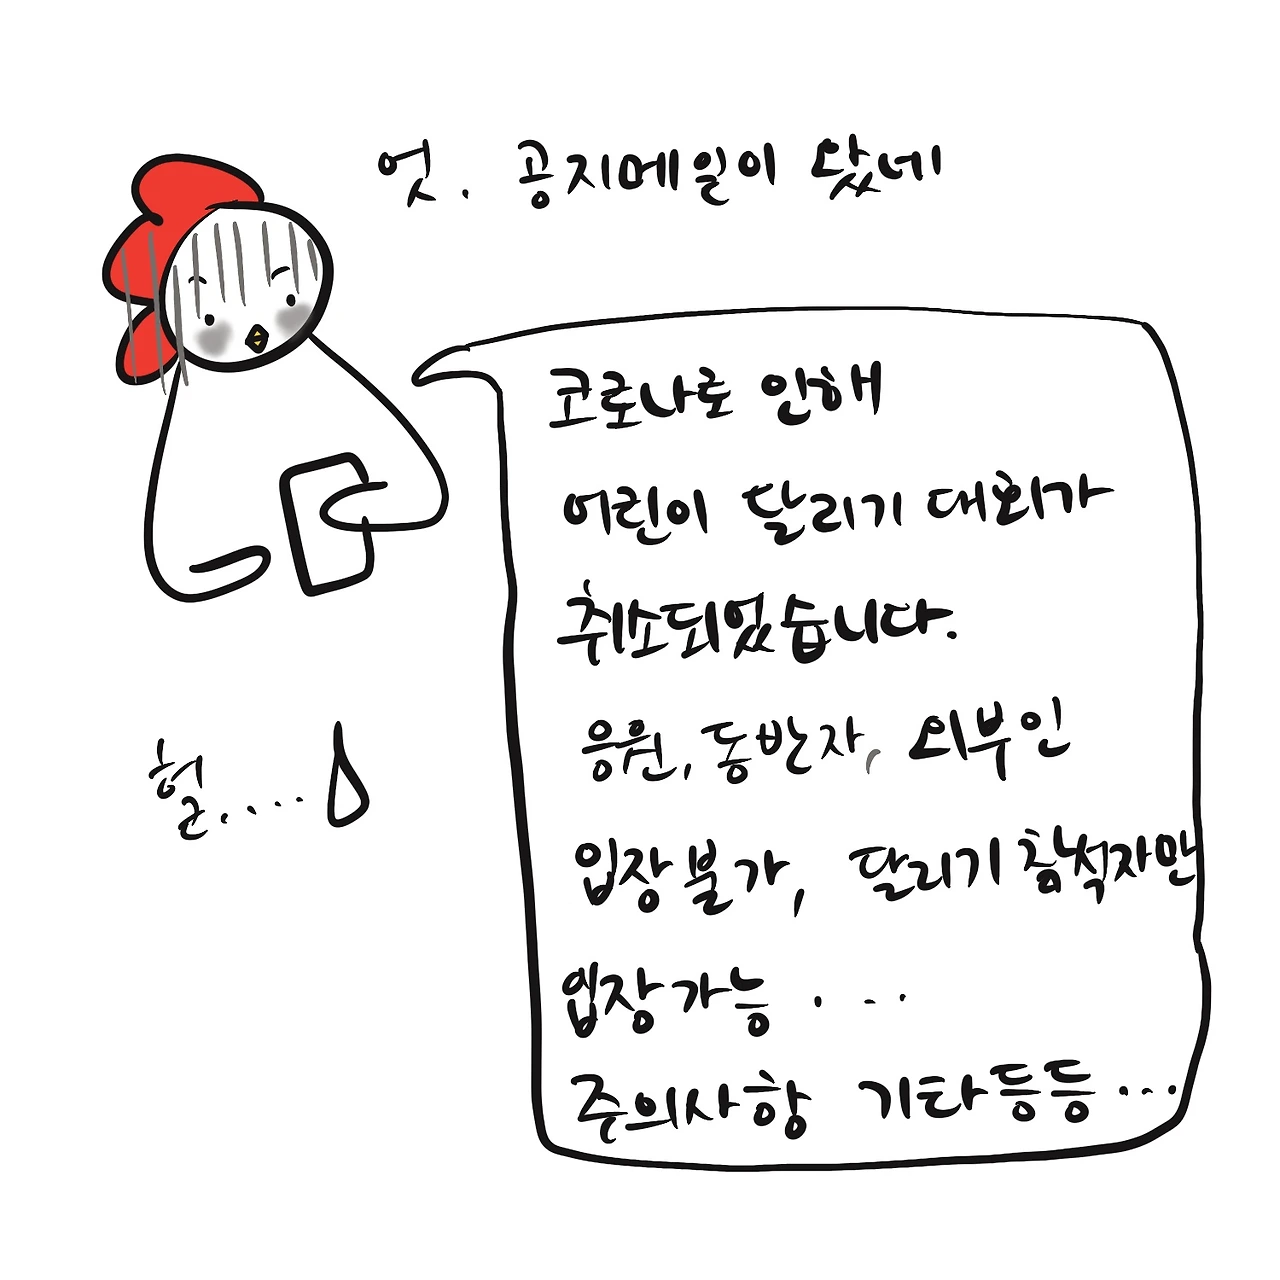 엇. 공지메일이 왔네
코로나로 인해
어린이 달리기 대회가
취소되었습니다.
응원, 동반자, 외부인
입장불가, 달리기 참석자만
입장가능 ...
주의사항 기타등등...
헐....